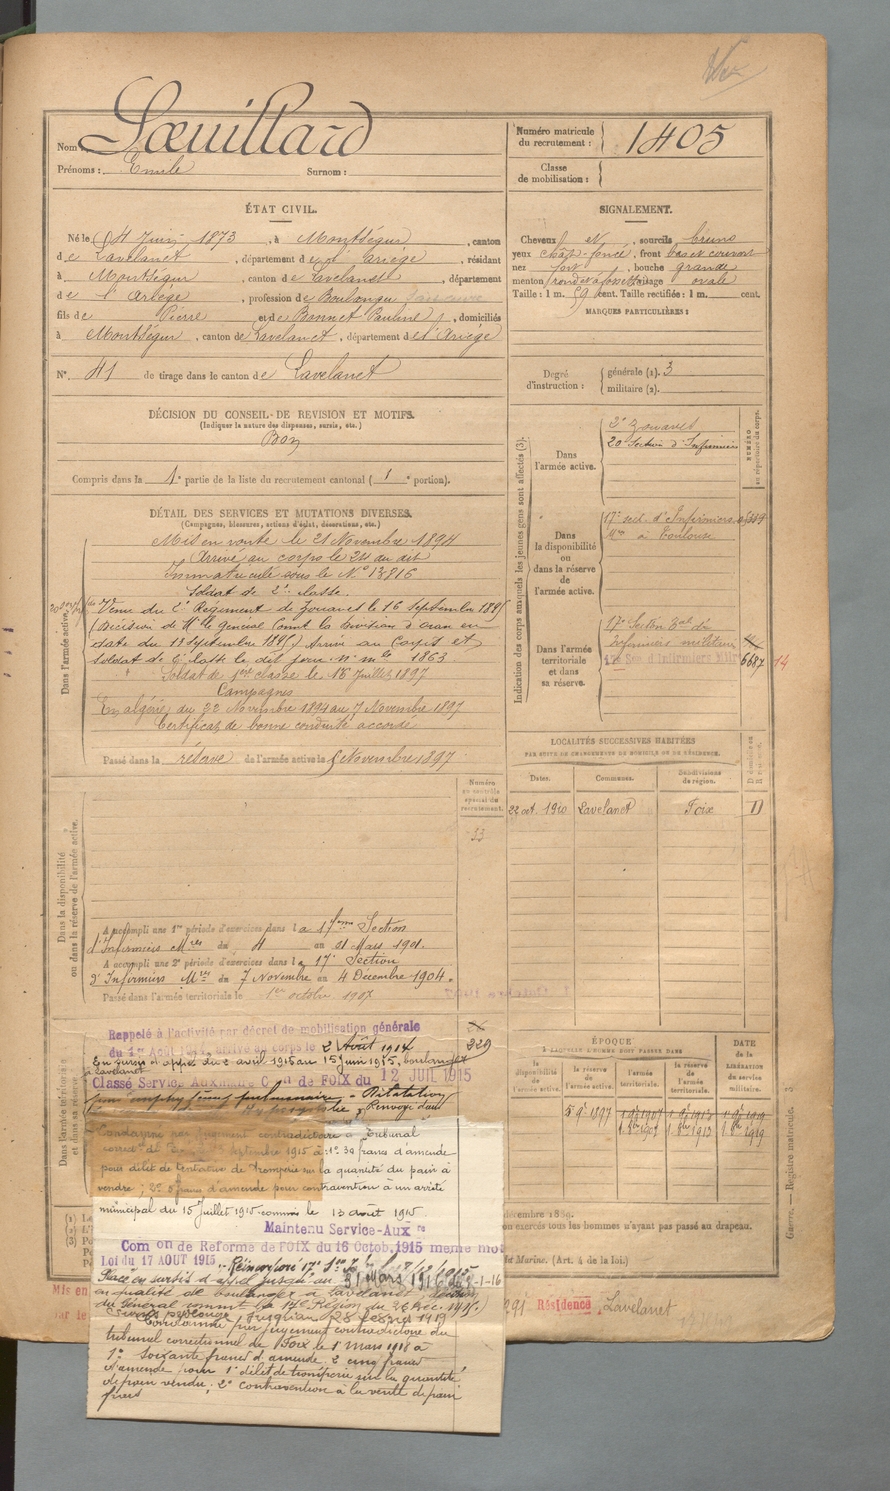 Nom : Lœuillard
Prénoms : Emile Surnom :
Numéro matricule
du recrutement : 1405
Classe
de mobilisation :
ÉTAT CIVIL.
Né le 4 Juin 1873, à Montségur, canton
de Lavelanet, département de l'Ariège, résidant
à Montségur, canton de Lavelanet, département
de l'Ariège, profession de Boulanger
fils de Pierre et de Bonnet Pauline, domiciliés
à Montségur, canton de Lavelanet, département de l'Ariège
N° 41 de tirage dans le canton de Lavelanet
SIGNALEMENT.
Cheveux et sourcils bruns
yeux chât-foncé, front bas et couvert
nez fort, bouche grande
menton rond et à fossette visage ovale
Taille : 1 m. 59 cent. Taille rectifiée : 1 m. cent.
MARQUES PARTICULIÈRES :
Degré
d'instruction :
générale (1). 3
militaire (2).
DÉCISION DU CONSEIL DE REVISION ET MOTIFS.
(Indiquer la nature des dispenses, sursis, etc.)
Bon
Compris dans la 1e partie de la liste du recrutement cantonal ( 1e portion).
DÉTAIL DES SERVICES ET MUTATIONS DIVERSES.
(Campagnes, blessures, actions d'éclat, décorations, etc.)
Dans l'armée active.
Mis en route le 21 Novembre 1894
Arrivé au corps le 24 du dit
Immatriculé sous le N° 13816
Soldat de 2e classe.
Venu du 2e Régiment de Zouaves le 16 Septembre
(Décision de Mr le Général Comt la Division d'Oran en
date du 13 septembre ) Arrivé au Corps et
soldat de 2e classe le dit jour. n° mle 1863.
Soldat de 1ère classe le 16 Juillet 1897
Campagnes
En algérie, du 22 Novembre 1894 au 7 Novembre 1897
Certificat de bonne conduite accordé
Passé dans la réserve de l'armée active le Novembre 1897
Indication des corps auxquels les jeunes gens sont affectés (3).
NUMÉRO
au répertoire du corps.
Dans
l'armée active.
2e Zouaves
20 Section d'Infirmiers
Dans
la disponibilité
ou dans la réserve
de
l'armée active.
17e sect. d'Infirmiers
Mres à Toulouse
Dans l'armée
territoriale
et dans
sa réserve.
17e Section
Infirmiers militaires
6687 14
LOCALITÉS SUCCESSIVES HABITÉES
PAR SUITE DE CHANGEMENTS DE DOMICILE OU DE RÉSIDENCE.
Dates. Communes. Subdivisions
de région.
22 oct. 1910 Lavelanet Foix D
Dans la disponibilité
ou dans la réserve de l'armée active.
Numéro
au contrôle
spécial du
recrutement.
33
A accompli une 1re période d'exercices dans la 17ème Section
d'Infirmiers Mres du 4 au 31 Mars 1901.
A accompli une 2e période d'exercices dans la 17e Section
d'Infirmiers Mres du 7 Novembre au 4 Decembre 1904.
Passé dans l'armée territoriale le 1er octobre 1907
229
Rappelé à l'activité par décret de mobilisation générale
du 1er Août 1914, arrivé au corps le 2 Août 1914
En sursis d'appel du 2 avril 1915 au 15 Juin 1915, boulanger
à Lavelanet
Classé Service Auxiliaire Con de FOIX du 12 JUIL 1915
Condamné par jugement contradictoire du Tribunal
correct. de Septembre 1915 à : 1° 30 francs d'amende
pour délit de tentative de tromperie sur la quantité du pain à
vendre ; 2° 5 francs d'amende pour contravention à un arrêté
municipal du 15 Juillet 1915 commis le 13 août 1915.
Maintenu Service-Auxre
Comon de Reforme de FOIX du 16 Octob. 1915 même mot
Loi du 17 AOUT 1915
Placé en sursis d'appel jusqu'au 31 Mars 1916
en qualité de boulanger à Lavelanet, décision
du Général commt la 17e Région du
Condamné par jugement contradictoire du
tribunal correctionnel de Foix le 1er Mars 1918 à
1° Soixante francs d'amende 2° cinq francs
d'amende pour 1° délit de tromperie sur la quantité
de pain vendu ; 2° contravention à la vente de pain
frais
ÉPOQUE
À LAQUELLE L'HOMME DOIT PASSER DANS
DATE
de la
LIBÉRATION
du service
militaire.
la
disponibilité
de l'armée
active.
la réserve
de
l'armée active.
l'armée
territoriale.
la réserve
de l'armée
territoriale.
1897 1907 1913 1919
1907 1913 1919
on exercés tous les hommes n'ayant pas passé au drapeau.
et Marine. (Art. 4 de la loi.)
Guerre. — Registre matricule. 3.
Résidence Lavelanet